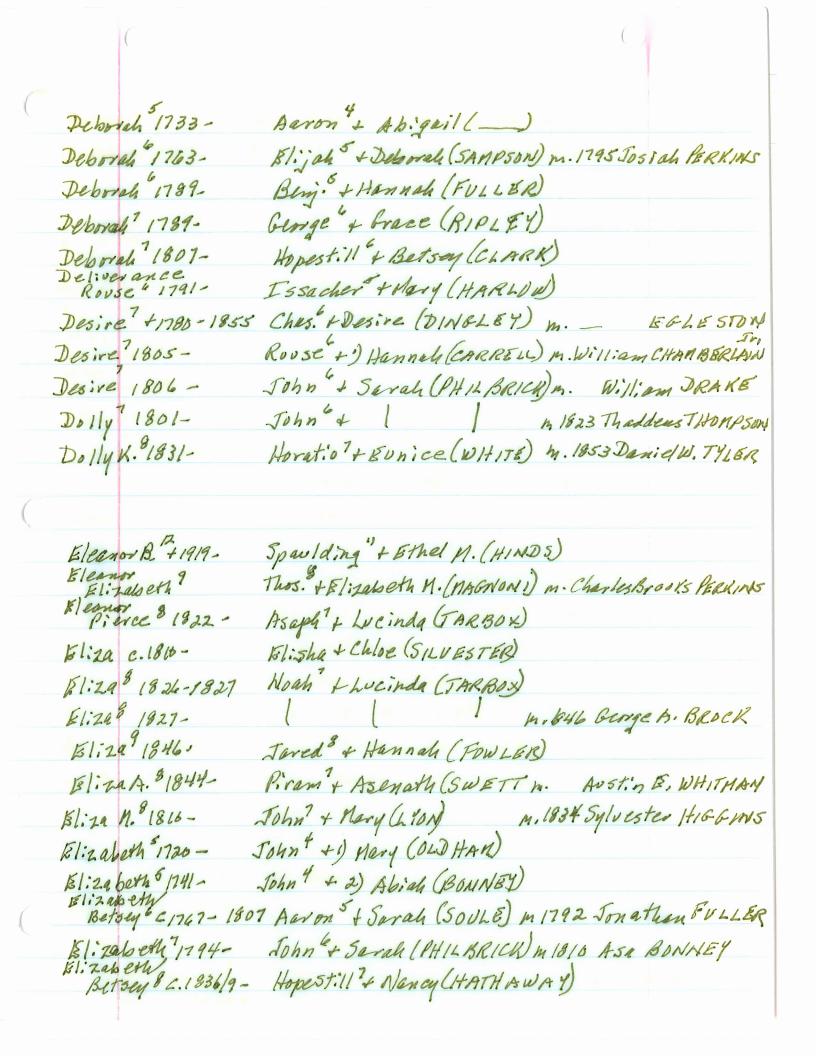 Deborah⁵ 1733- Aaron⁴ + Abigail (____)
Deborah⁶ 1763- Elijah⁵ + Deborah (SAMPSON) m. 1795 Josiah PERKINS
Deborah⁶ 1789- Benj.⁵ + Hannah (FULLER)
Deborah⁷ 1789- George⁶ + Grace (RIPLEY)
Deborah⁷ 1807- Hopestill⁶ + Betsey (CLARK)
Deliverance
Rouse⁶ 1791- Issacher⁵ + Mary (HARLOW)
Desire⁷ +1780-1855 Chas.⁶ + Desire (DINGLEY) m. __ EGLESTON
Desire⁷ 1805- Rouse⁶ + 1) Hannah (CARRELL) m. William CHAMBERLAIN Jr.
Desire⁷ 1806- John⁶ + Sarah (PHILBRICK) m. William DRAKE
Dolly⁷ 1801- John⁶ + | | m 1823 Thaddeus THOMPSON
Dolly K.⁸ 1831- Horatio⁷ + Eunice (WHITE) m. 1853 Daniel W. TYLER
Eleanor B.¹² +1919- Spaulding¹¹ + Ethel M. (HINDS)
Eleanor
Elizabeth⁹ Thos.⁸ + Elizabeth M. (MAGNONI) m. Charles Brooks PERKINS
Eleanor
Pierce⁸ 1822- Asaph⁷ + Lucinda (TARBOX)
Eliza c. 1810- Elisha + Chloe (SILVESTER)
Eliza⁸ 1826-1827 Noah⁷ + Lucinda (TARBOX)
Eliza⁸ 1827- | | | m. 1846 George A. BROCK
Eliza⁹ 1846. Jared⁸ + Hannah (FOWLER)
Eliza A.⁸ 1844- Piram⁷ + Asenath (SWETT m. Austin E. WHITMAN
Eliza N.⁸ 1816- John⁷ + Mary (LYON) m. 1834 Sylvester HIGGINS
Elizabeth⁵ 1720- John⁴ + 1) Mary (OLDHAM)
Elizabeth⁵ 1741- John⁴ + 2) Abiah (BONNEY)
Elizabeth/
Betsey⁶ c 1767-1807 Aaron⁵ + Sarah (SOULE) m 1792 Jonathan FULLER
Elizabeth⁷ 1794- John⁶ + Sarah (PHILBRICK) m 1810 Asa BONNEY
Elizabeth/
Betsey⁸ c. 1836/9- Hopestill⁷ + Nancy (HATHAWAY)